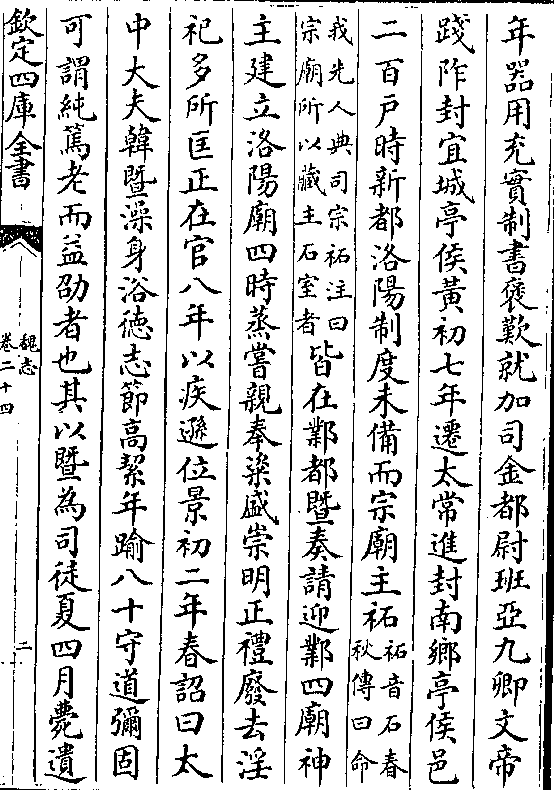 年器用充實制書褒歎就加司金都尉班亞九卿文帝
踐阼封宜城亭侯黃初七年遷太常進封南鄉亭侯邑
二百戶時新都洛陽制度未備而宗廟主祏祏音石春
秋傳曰命
我先人典司宗祏注曰
宗廟所以藏主石室者皆在鄴都暨奏請迎鄴四廟神
主建立洛陽廟四時蒸嘗親奉粢盛崇明正禮廢去淫
祀多所匡正在官八年以疾遜位景初二年春詔曰太
中大夫韓暨澡身浴德志節高絜年踰八十守道彌固
可謂純篤老而益劭者也其以暨為司徒夏四月薨遺
欽定四庫全書
魏志
卷二十四
二